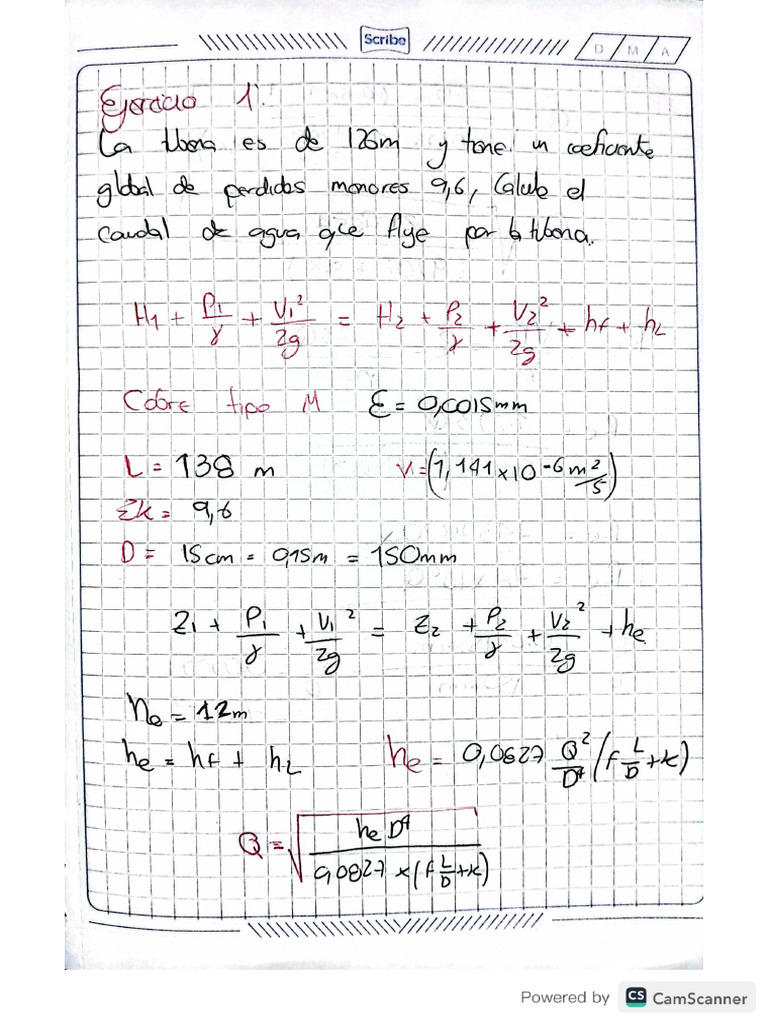 Scribe
D M A
Ejercicio 1.
La tuberia es de 126m y tiene un coeficiente
global de perdidas menores 9,6, Calcule el
caudal de agua que fluye por la tuberia.
H1 + P1/γ + V1²/2g = H2 + P2/γ + V2²/2g + hf + hL
Cobre tipo M ε = 0,0015mm
L = 138 m V = (1,141 x 10 -6 m2/s)
Σk = 9,6
D = 15cm = 0,15m = 150mm
Z1 + P1/γ + V1²/2g = Z2 + P2/γ + V2²/2g + he
he = 12m
he = hf + hL he = 0,0827 Q²/D⁴ (f L/D + k)
Q = √(he D⁴ / 0,0827 x (f L/D + k))
Powered by CS CamScanner